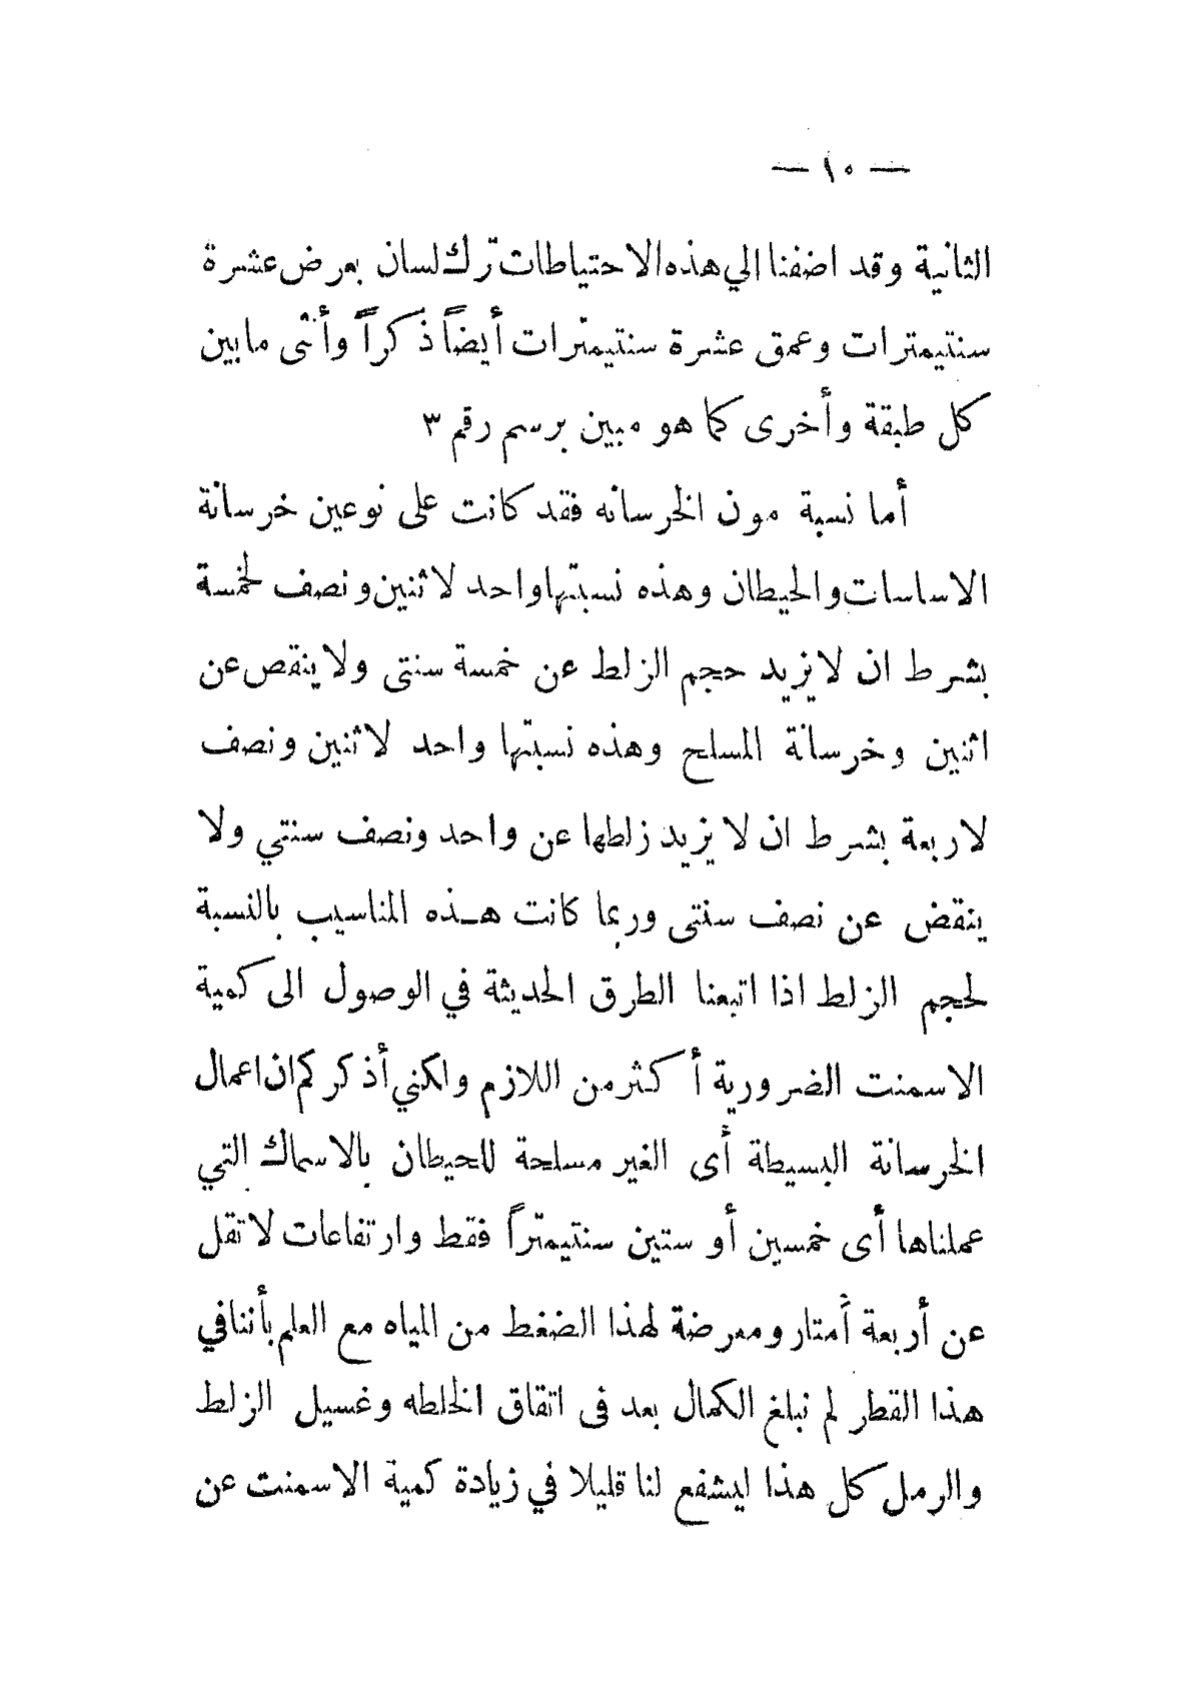 — ١٥ —
الثانية وقد اضفنا الي هذه الاحتياطات ترك لسان بعرض عشرة
سنتيمترات وعمق عشرة سنتيمترات أيضاً ذكراً وأنثى مابين
كل طبقة وأخرى كما هو مبين برسم رقم ٣
أما نسبة مون الخرسانه فقد كانت على نوعين خرسانة
الاساسات والحيطان وهذه نسبتها واحد لاثنين ونصف لخمسة
بشرط ان لا يزيد حجم الزلط عن خمسة سنتى ولا ينقص عن
اثنين وخرسانة المسلح وهذه نسبتها واحد لاثنين ونصف
لاربعة بشرط ان لا يزيد زلطها عن واحد ونصف سنتي ولا
ينقض عن نصف سنتى وربما كانت هـذه المناسيب بالنسبة
لحجم الزلط اذا اتبعنا الطرق الحديثة في الوصول الى كمية
الاسمنت الضرورية أكثر من اللازم ولكني أذكركم ان اعمال
الخرسانة البسيطة أى الغير مسلحة للحيطان بالاسماك التي
عملناها أى خمسين أو ستين سنتيمتراً فقط وارتفاعات لا تقل
عن أربعة أمتار ومعرضة لهذا الضغط من المياه مع العلم بأننا في
هذا القطر لم نبلغ الكمال بعد فى اتقاق الخلطه وغسيل الزلط
والرمل كل هذا ليشفع لنا قليلا في زيادة كمية الاسمنت عن